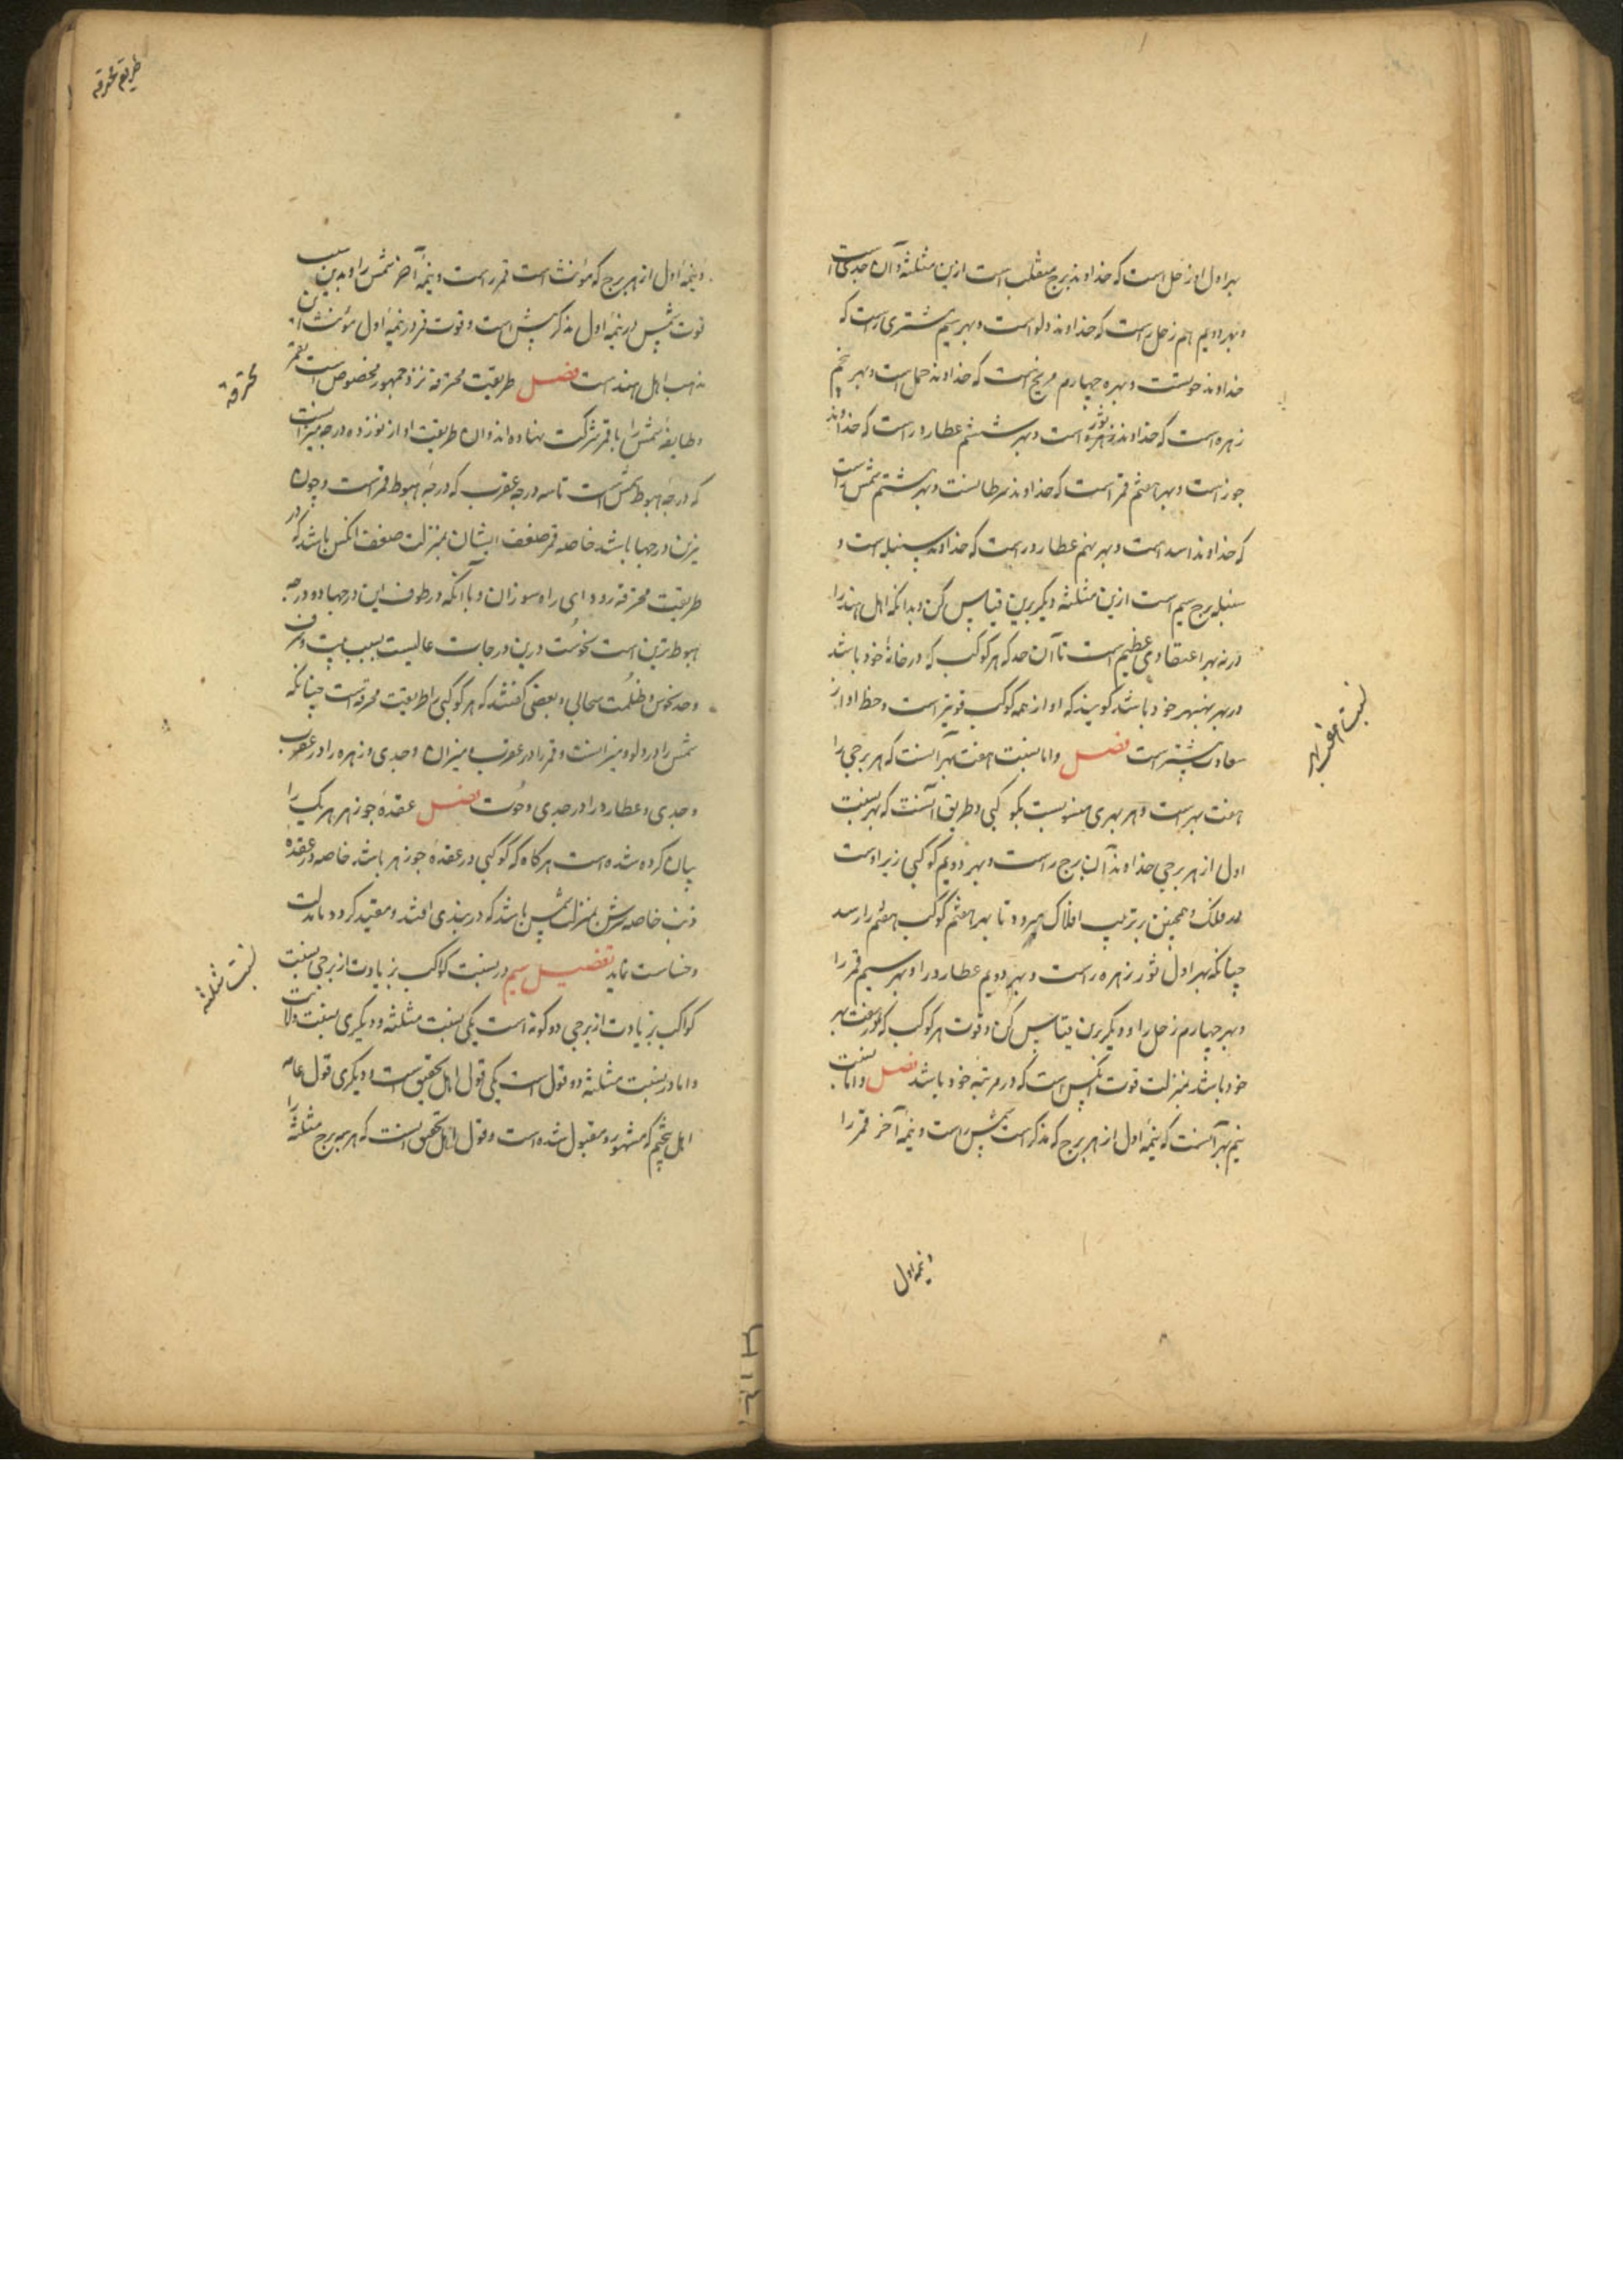 بهر اول او زحل است که خداوند برج منقلب است ازین مثلثه و آن جدی است
و بهر دویم هم زحل راست که خداوند دلو است و بهر سیم مشتری راست که
خداوند حوتست و بهره چهارم مریخ است که خداوند حمل است و بهر پنجم
زهره است که خداوند ثور است و بهر ششم عطارد راست که خداوند
جوزاست و بهر هفتم قمر است که خداوند سرطانست و بهر هشتم شمس راست
که خداوند اسد است و بهر نهم عطارد راست که خداوند سنبله است و
سنبله برج سیم است ازین مثلثه و دیگر برین قیاس کن و بدانکه اهل هند را
در نه بهر اعتقادی عظیم است تا آن حد که هر کوکب که در خانهٔ خود باشد
در بهر نه بهر خود باشد گویند که او از همه کوکب قویتر است و حظ او از
سعادت بیشتر است فصل و اما نسبت هفت بهر آنست که هر برجی را
هفت بهر است و هر بهری منسوبست بکوکبی و طریق آنست که بهر نسبت
اول از هر برجی خداوند آن برج راست و بهر دویم کوکبی زیر اوست
در فلک و همچنین بر ترتیب افلاک میرود تا بهر هفتم کوکب هفتم را رسد
چنانکه بهر اول ثور زهره راست و بهر دویم عطارد را و بهر سیم قمر را
و بهر چهارم زحل را و دیگر برین قیاس کن و قوت هر کوکب که در هفت بهر
خود باشد بمنزلت قوت آنکس است که در مرتبه خود باشد فصل و اما نسبت
نیم بهر آنست که نیمهٔ اول از هر برج که مذکر است شمس راست و نیمهٔ آخر قمر را
و نیمه اول
نسبت هفت بهر
طریقه محرقه
و نیمهٔ اول از هر برج که مؤنث است قمر راست و نیمهٔ آخر شمس را و بدین سبب
قوت شمس در نیمهٔ اول مذکر بیش است و قوت قمر در نیمهٔ اول مؤنث این
مذهب اهل هند است فصل طریقت محترقه نزد جمهور مخصوص است بقمر
و طایفهٔ شمس را با قمر شرکت نهاده‌اند و آن طریقت او از نوزده درجه میزانست
که درجه هبوط شمس است تا سه درجه عقرب که درجهٔ هبوط قمر است و چون
نیرین درجها باشد خاصه قمر ضعف ایشان بمنزلت ضعف آنکس باشد که در
طریقت محترقه رود ای راه سوزان و با آنکه در طرف این درجها دو درجه
هبوط نیرین است نحوست درین درجات عالیست بسبب
و حد نحوس و ظلمت سحابی و بعضی گفتند که هر کوکبی را طریقت محرقه است چنانکه
شمس را در دلو و میزانست و قمر را در عقرب و میزان و جدی و زهره را در عقرب
و جدی و عطارد را در جدی و حوت فصل عقدهٔ جوزهر هر یک را
بیان کرده شده است هر کاه که کوکبی در عقدهٔ جوزهر باشد خاصه در عقدهٔ
ذنب خاصه بمنزلت باشد که در بندی افتد و مقید گردد بمذلت
و خساست نماید تفصیل سیم در نسبت کواکب بزیادت از برجی نسبت
کواکب بزیادت از برجی دو کونه است یکی نسبت مثلثه و دیگری نسبت ولایت
و اما در نسبت مثلثه دو قول است یکی قول اهل تحقیق است و دیگری قول عامه
اهل تنجیم که مشهور و مقبول شده است و قول اهل تحقیق آنست که هر سه برج مثلثه را
محرقه
نسبت مثلثه